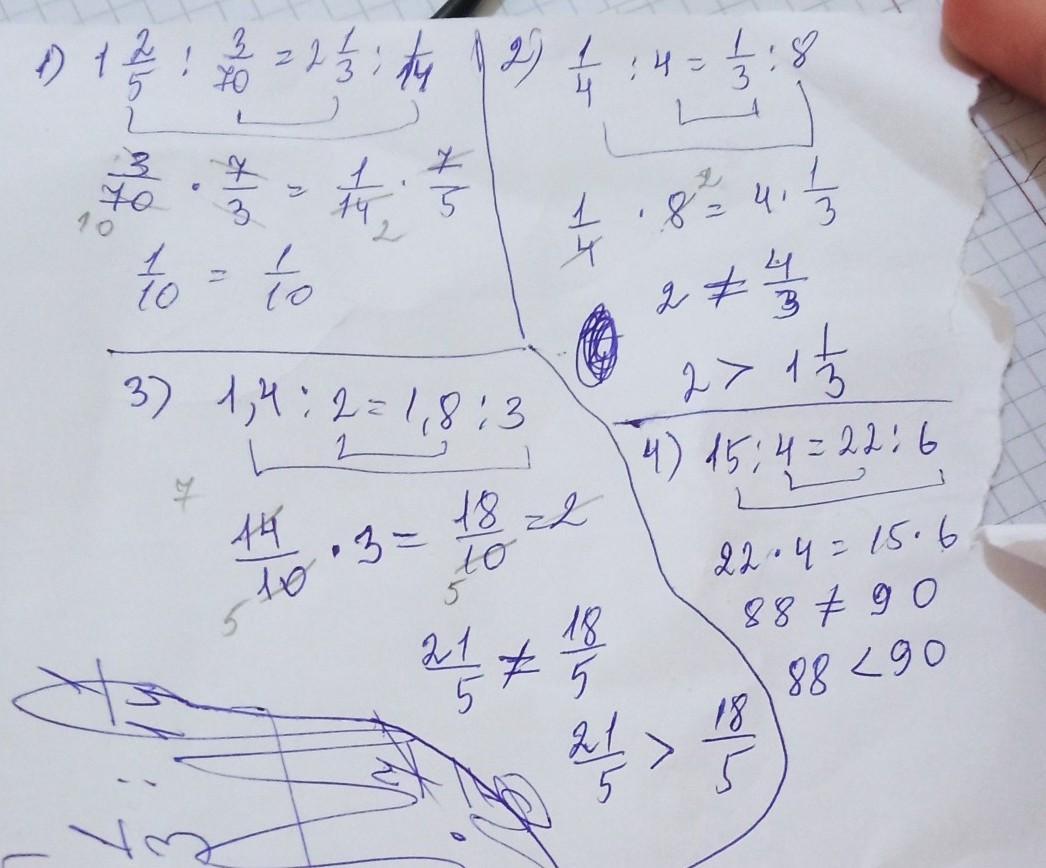 1) 1 2/5 : 3/70 = 2 1/3 : 1/14
3/70 · 7/3 = 1/14 · 7/5
10 2
1/10 = 1/10
2) 1/4 : 4 = 1/3 : 8
2
1/4 · 8 = 4 · 1/3
2 ≠ 4/3
2 > 1 1/3
3) 1,4 : 2 = 1,8 : 3
7
14/10 · 3 = 18/10 = 2
5 5
21/5 ≠ 18/5
21/5 > 18/5
4) 15 : 4 = 22 : 6
22 · 4 = 15 · 6
88 ≠ 90
88 < 90